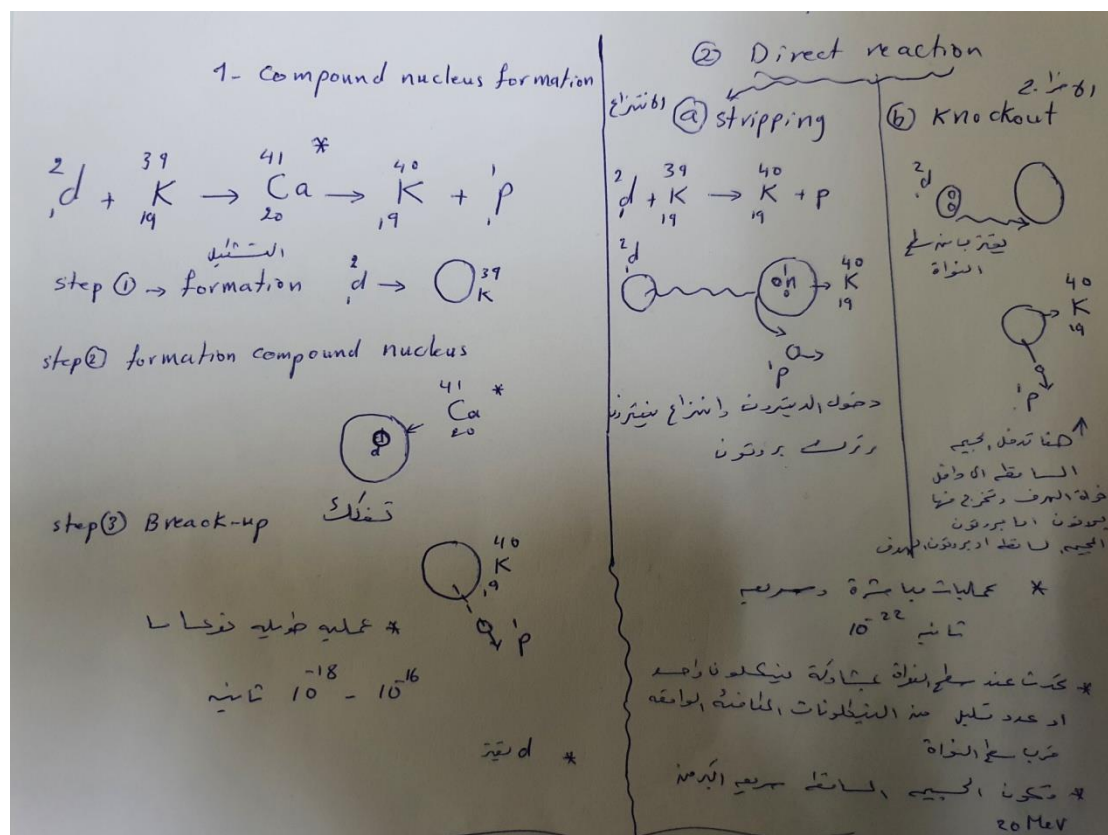 1- Compound nucleus formation
²₁d + ³⁹₁₉K → ⁴¹₂₀Ca* → ⁴⁰₁₉K + ¹₁P
step ① → formation ²₁d → ³⁹K
step② formation compound nucleus
⁴¹₂₀Ca*
d
تفكك
step③ Breack-up
⁴⁰₁₉K
¹₁P
* عمليه طويله نوعا ما
10⁻¹⁸ - 10⁻¹⁶ ثانيه
* d
② Direct reaction
الانتزاع
ⓐ stripping
²₁d + ³⁹₁₉K → ⁴⁰₁₉K + P
²₁d
¹₀n → ⁴⁰₁₉K
¹₁P
دخول الديترون وانتزاع نيترون
وترك بروتون
ⓑ Knockout
²₁d
يقترب من سطح
النواة
⁴⁰₁₉K
¹₁P
هنا تدخل الجسيمه
الساقطه الى داخل
نواة الهدف وتخرج منها
بروتون اما بروتون
الجسيمه الساقطه او بروتون الهدف
* عمليات مباشرة وسريعه
10⁻²² ثانيه
* تحدث عند سطح النواة بمشاركة نيكلون واحد
او عدد قليل من النيكلونات الواقعه
قرب سطح النواة
* وتكون الجسيمه الساقطه سريعه اكبر من
20 MeV